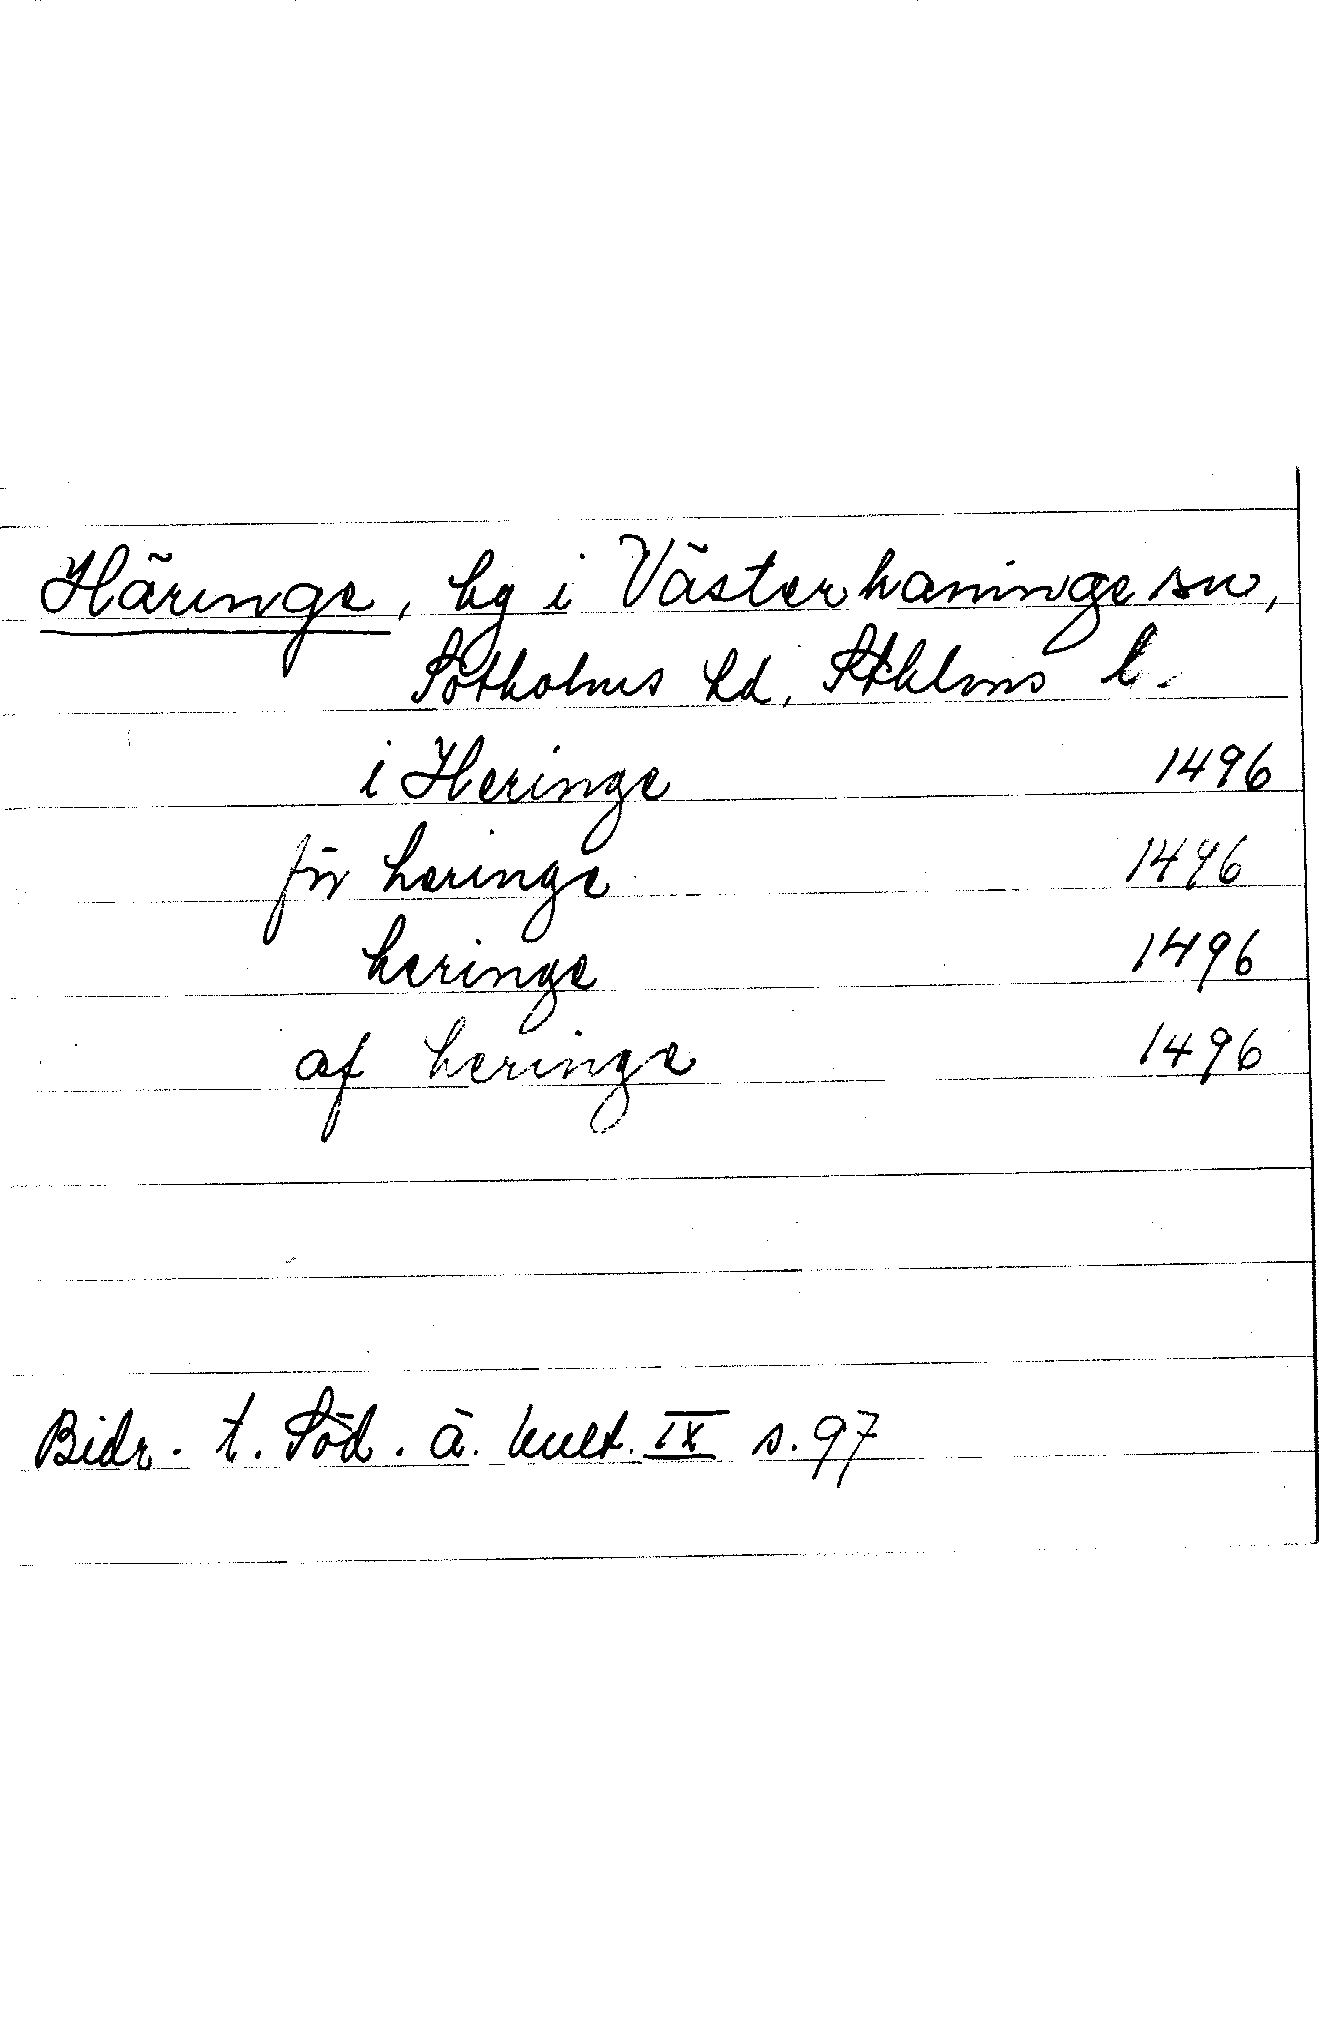 Häringe, hg i Västerhaninge sn,
Sotholms hd, Sthlms l.
i Heringe 1496
för heringe 1496
heringe 1496
af heringe 1496
Bidr. t. Söd. ä. kult. IX s. 97